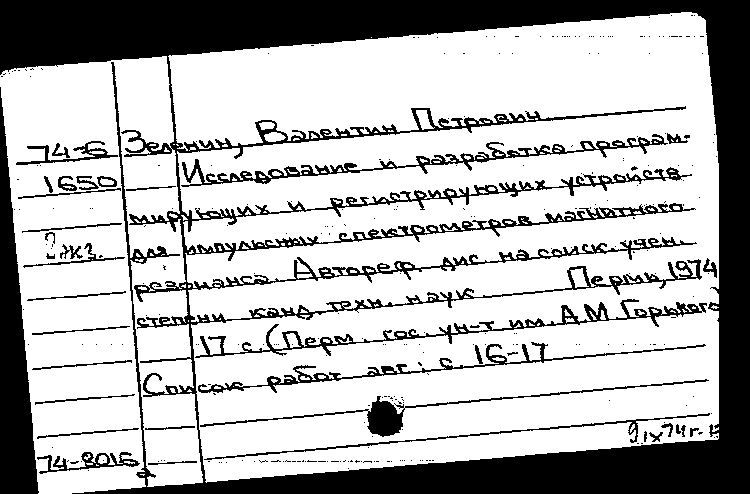 74-6 Зеленин, Валентин Петрович
1650 Исследование и разработка програм-
мирующих и регистрирующих устройств
2 экз. для импульсных спектрометров магнитного
резонанса. Автореф. дис. на соиск. учен.
степени канд. техн. наук. Пермь, 1974
17 с. (Перм. гос. ун-т им. А.М. Горького)
Список работ авт.: с. 16-17
9 IX 74 г.
74-8016